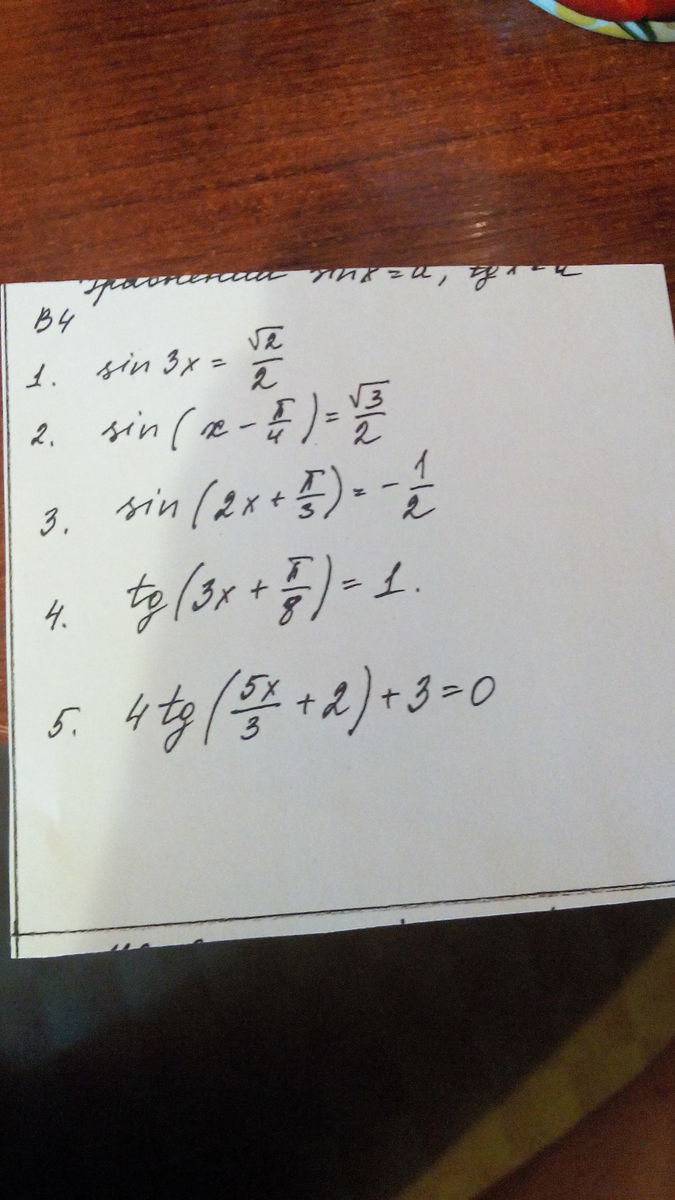 уравнений sin x = a, tg x = a
В4
1. sin 3x = √2/2
2. sin(x - π/4) = √3/2
3. sin(2x + π/3) = -1/2
4. tg(3x + π/8) = 1.
5. 4 tg(5x/3 + 2) + 3 = 0